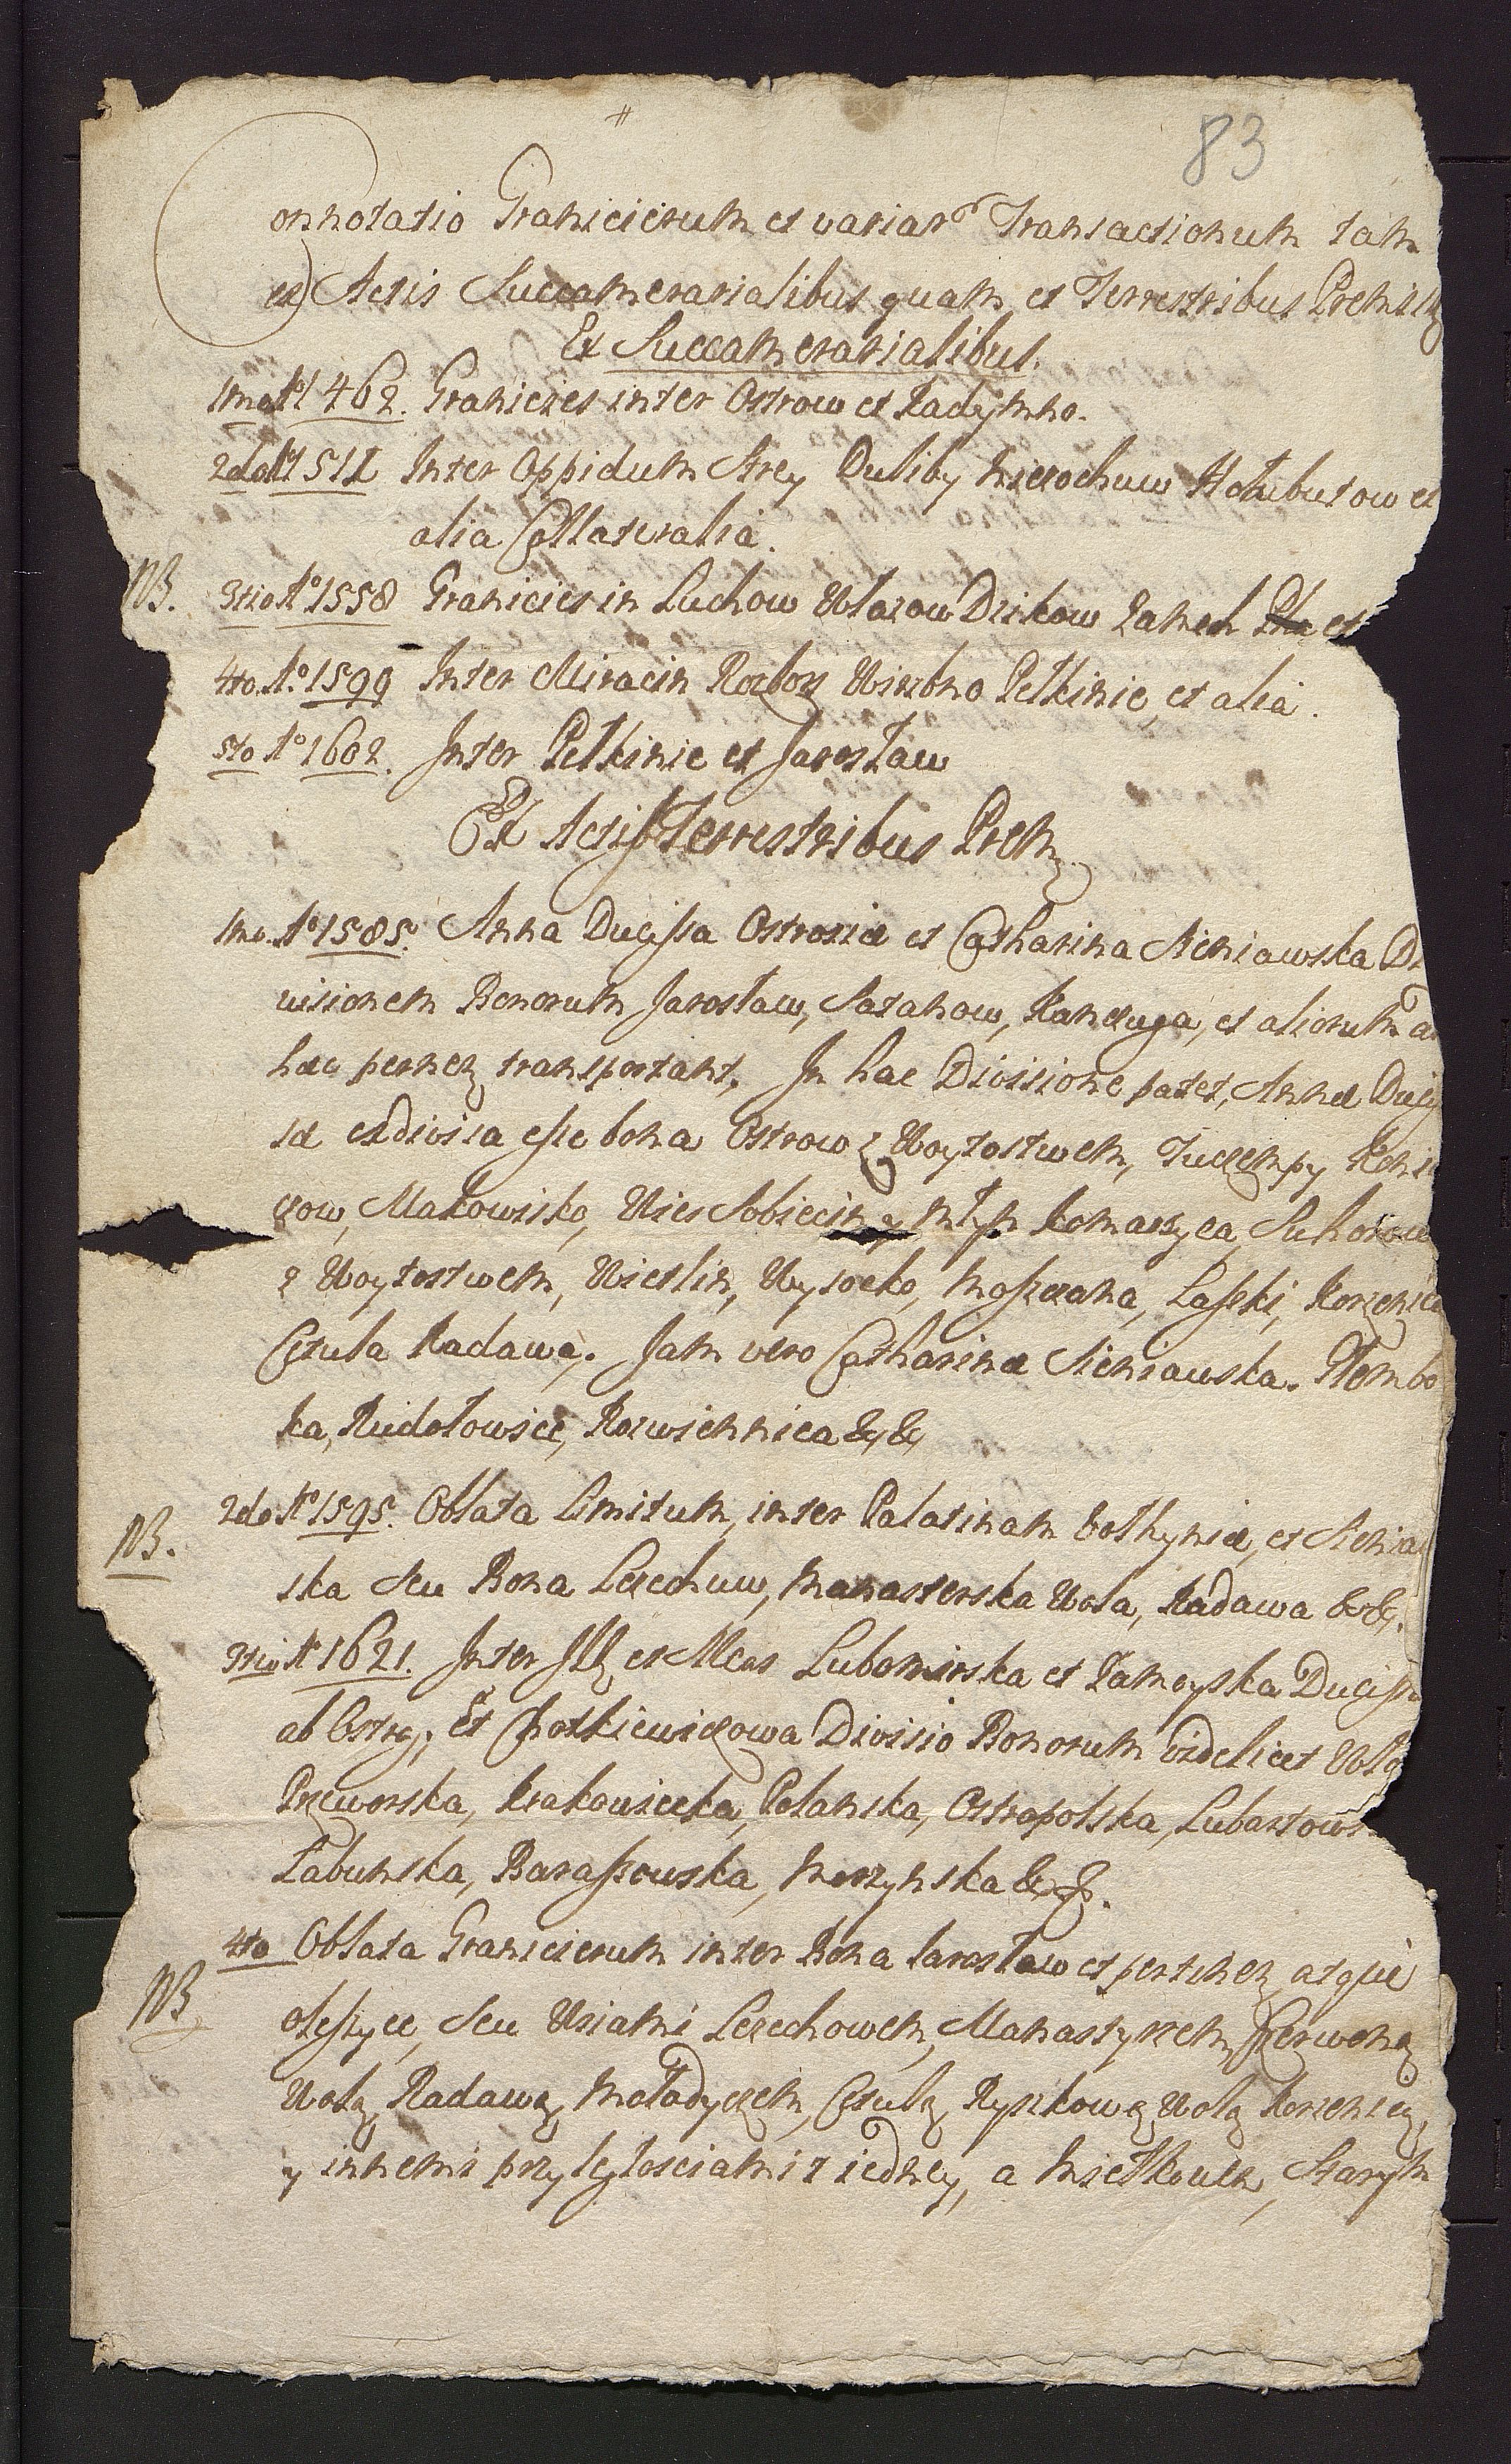 83
Connotatio Granicierum et variar. Transactionum tam
ex Actis Succamerarialibus quam et Terrestribus Premisl
Ex Succamerarialibus.
1mo Ao 1462. Granicies inter Ostrow et Radymno.
2do Ao 1511 Inter Oppidum Strey Duliby Hołubutow et
alia Collateralia.
NB. 3tio Ao 1558 Granicies in Luchow Ułazow Dzikow Zamech et
4to. Ao. 1599 Inter Miracin Rozborz Wirzbno Pełkinie, et alia.
5to Ao 1602. Inter Pełkinie et Jarosław
Ex Actis Terrestribus Prem
1mo. Ao 1585. Anna Ducissa Ostrosiæ et Catharina Sieniawska Di
visionem Bonorum Jarosław, Satanow, Kanczuga, et aliorum ad
hæc transportant. In hac Divisione patet, Annæ Ducis
sæ exdivisa esse bona Ostrow z Woytostwem, Tuczempy Koni
czow, Makowisko, Wies Sobiecin y Młyn Komarzyca, Suhorow
z Woytostwem, Wietlin, Wysocko, Moszczana, Laszki, Korzenica
Cetula Radawa. Jam vero Catharinæ Sieniawska. Hłembo
ka, Rudołowice, Rozwiennica &c &c
NB. 2do Ao 1595. Oblata Limitum, inter Palatinam Volhyniæ, et Sieniaw
ska Seu Bona Lezechuw, Manasterska Wola, Radawa &c &c.
3tio Ao 1621. Inter Ill et Mcas Lubomirska et Zamoyska Ducissa
ab Ostrog, Et Chotkiewiczowa Divisio Bonorum videlicet Włość
Przeworska, Krakowiecka, Polanska, Ostropolska, Lubartows
Łabunska, Baraszowska, &c &c.
NB 4to Oblata Granicierum inter Bona Jarosław et pertinen atque
Oleszyce, Seu Wsiami Lezechowem, Manastyrzem, Czerwoną
Wolą, Radawą, Mołodyczem, Cetulą, Ryszkową Wolą Korzenicą,
y innemi przyległosciami z iedney, a Miełkowem, Starym